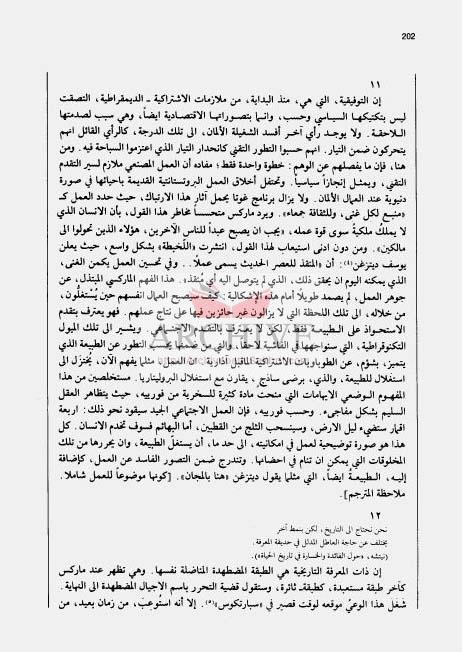 202
١١
إن التوفيقية، التي هي، منذ البداية، من ملازمات الاشتراكية ـ الديمقراطية، التصقت
ليس بتكتيكها السياسي وحسب، وانما بتصوراتها الاقتصادية ايضاً، وهي سبب لصدمتها
اللاحقة. ولا يوجد رأي آخر أفسد الشغيلة الألمان، الى تلك الدرجة، كالرأي القائل انهم
يتحركون ضمن التيار. انهم حسبوا التطور التقني كانحدار التيار الذي اعتزموا السباحة فيه. ومن
هنا، فإن ما يفصلهم عن الوهم: خطوة واحدة فقط؛ مفاده أن العمل المصنعي ملازم لسير التقدم
التقني، ويمثل إنجازاً سياسياً. وتحتفل أخلاق العمل البروتستانتية القديمة باحيائها في صورة
دنيوية عند العمال الألمان. ولا يزال برنامج غوتا يحمل آثار هذا الارتباك، حيث حدد العمل كـ
«منبع لكل غنى، وللثقافة جمعاء». ويرد ماركس متحسساً مخاطر هذا القول، بأن الانسان الذي
لا يملك ملكيةً سوى قوة عمله، «يجب ان يصبح عبداً للناس الآخرين، هؤلاء الذين تحولوا الى
مالكين». ومن دون ادنى استيعاب لهذا القول، انتشرت «اللخبطة» بشكل واسع، حيث يعلن
يوسف ديتزغن(٤): أن «المنقذ للعصر الحديث يسمى عملاً.. وفي تحسين العمل يكمن الغنى،
الذي يمكنه اليوم ان يحقق ذلك، الذي لم يتوصل اليه أي مُنقذ». هذا الفهم الماركسي المبتذل، عن
جوهر العمل، لم يصمد طويلاً أمام هذه الاشكالية: كيف سيصبح العمال انفسهم حين يُستغلّون،
من خلاله، الى تلك اللحظة التي لا يزالون غير حائزين فيها على نتاج عملهم. فهو يعترف بتقدم
الاستحواذ على الطبيعة فقط، لكن لا يعترف بالتقدم الاجتماعي. ويشير الى تلك الميول
التكنوقراطية، التي سنواجهها في الفاشية لاحقاً، والتي من ضمنها يُحسب التطور عن الطبيعة الذي
يتميز، بشؤم، عن الطوباويات الاشتراكية الماقبل آذارية. ان العمل، مثلما يفهم الآن، يُختزَل الى
استغلال للطبيعة، والذي، برضى ساذج، يقارن مع استغلال البروليتاريا. مستخلصين من هذا
المفهوم الوضعي الايهامات التي منحت مادة كثيرة للسخرية من فورييه، حيث يتظاهر العقل
السليم بشكل مفاجىء. وحسب فورييه، فإن العمل الاجتماعي الجيد سيقود نحو ذلك: اربعة
اقمار ستضيء ليل الارض، وسينسحب الثلج من القطبين، أما البهائم فسوف تخدم الانسان. كل
هذا هو صورة توضيحية لعمل في امكانيته، الى حد ما، أن يستغلّ الطبيعة، وان يحررها من تلك
المخلوقات التي يمكن ان تنام في احضانها. وتندرج ضمن التصور الفاسد عن العمل، كإضافة
إليه، الطبيعة ايضاً، التي مثلما يقول ديتزغن «هنا بالمجان». [كونها موضوعاً للعمل شاملا.
ملاحظة المترجم].
١٢
نحن نحتاج الى التاريخ، لكن بنمط آخر
يختلف عن حاجة العاطل المدلل في حديقة المعرفة.
(نيتشه، «حول الفائدة والخسارة في تاريخ الحياة»).
إن ذات المعرفة التاريخية هي الطبقة المضطهدة المناضلة نفسها. وهي تظهر عند ماركس
كآخر طبقة مستعبدة، كطبقة ثائرة، وستقول قضية التحرر باسم الاجيال المضطهدة الى النهاية.
شغل هذا الوعيُ موقعه لوقت قصير في «سبارتكوس»(٥). إلا أنه استُوعِبَ، من زمان بعيد، من
ARCHIVE